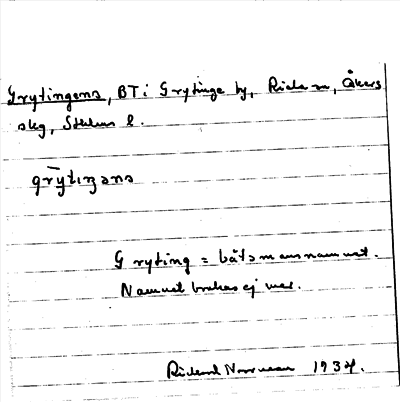 Grytingens, BT i Grytinge by, Riala sn, Åkers
skg, Sthlms l.
grȳtiŋəns
Gryting = båtsmansnamnet.
Namnet brukas ej mer.
Rickard Norrman 1934.